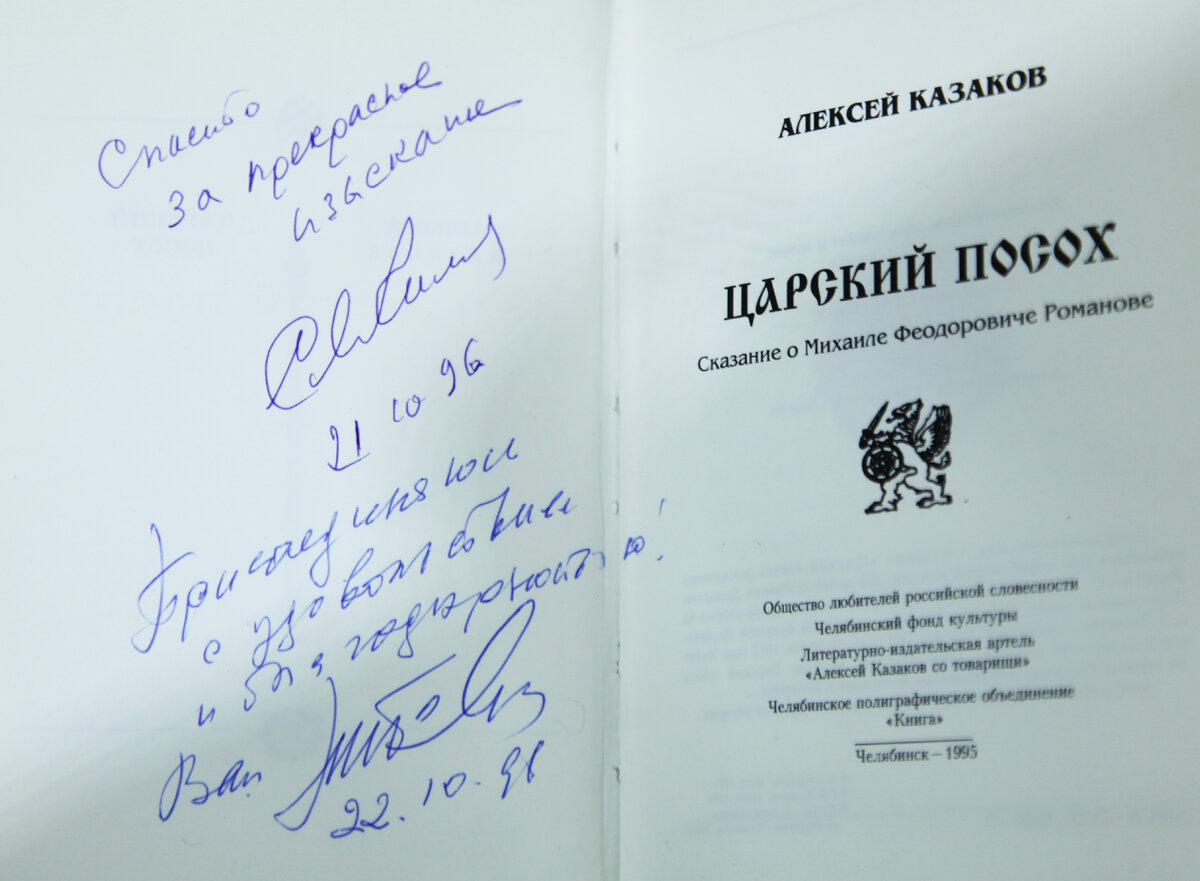 Спасибо
за прекрасное
изыскание
21 10 96
Присоединяюсь
с удовольствием
и благодарностью!
Ваш
22.10.96
АЛЕКСЕЙ КАЗАКОВ
ЦАРСКИЙ ПОСОХ
Сказание о Михаиле Феодоровиче Романове
Общество любителей российской словесности
Челябинский фонд культуры
Литературно-издательская артель
«Алексей Казаков со товарищи»
Челябинское полиграфическое объединение
«Книга»
Челябинск – 1995